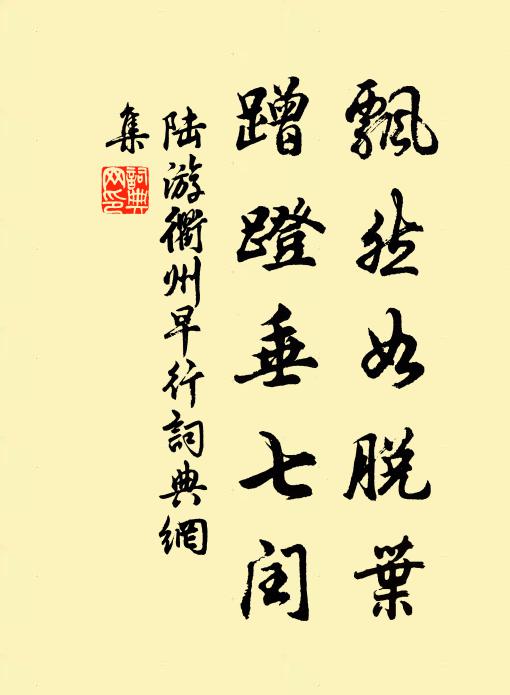 飄然如脫葉
蹭蹬垂七閏
陸游衢州早行詞典網
集
詞典
网印